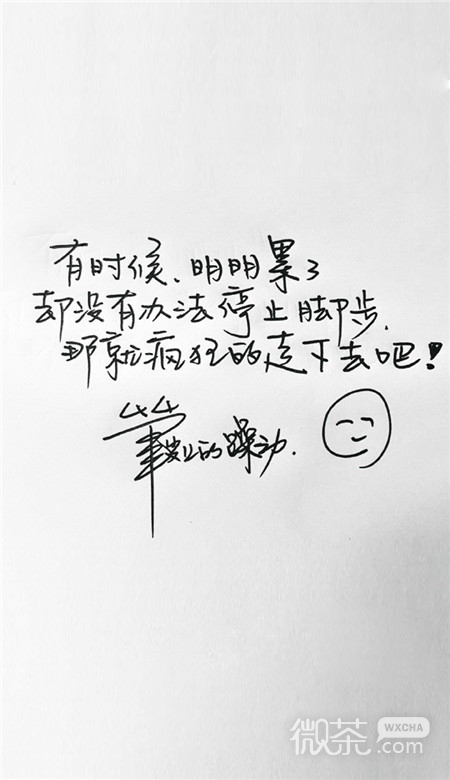 有时候、明明累了
却没有办法停止脚步.
那就疯狂的走下去吧!
笔尖上的躁动.
微茶 WXCHA
.com